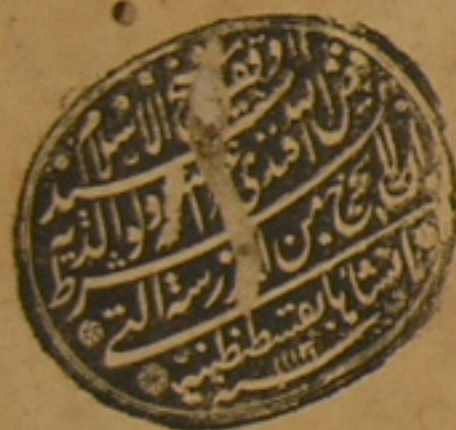 شيخ الاسلام
السيد فيض الله افندي غفر الله له ولوالديه
بشرط ان لا يخرج من المدرسة التي
انشاها بقسطنطينية
سنة